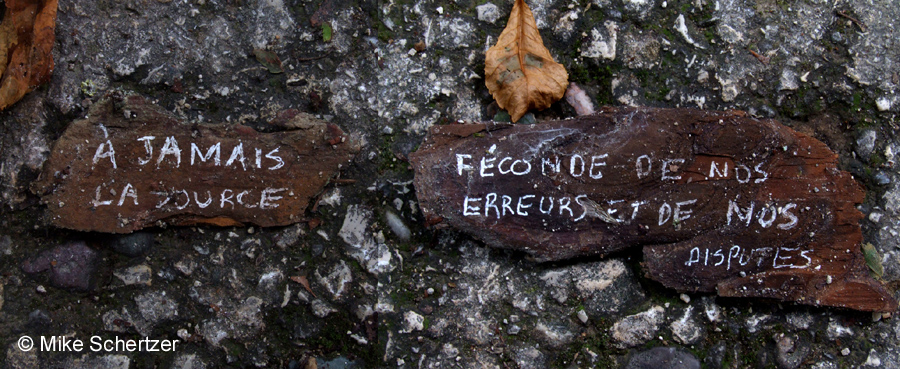 À JAMAIS
LA SOURCE
FÉCONDE DE NOS
ERREURS ET DE NOS
DISPUTES
© Mike Schertzer